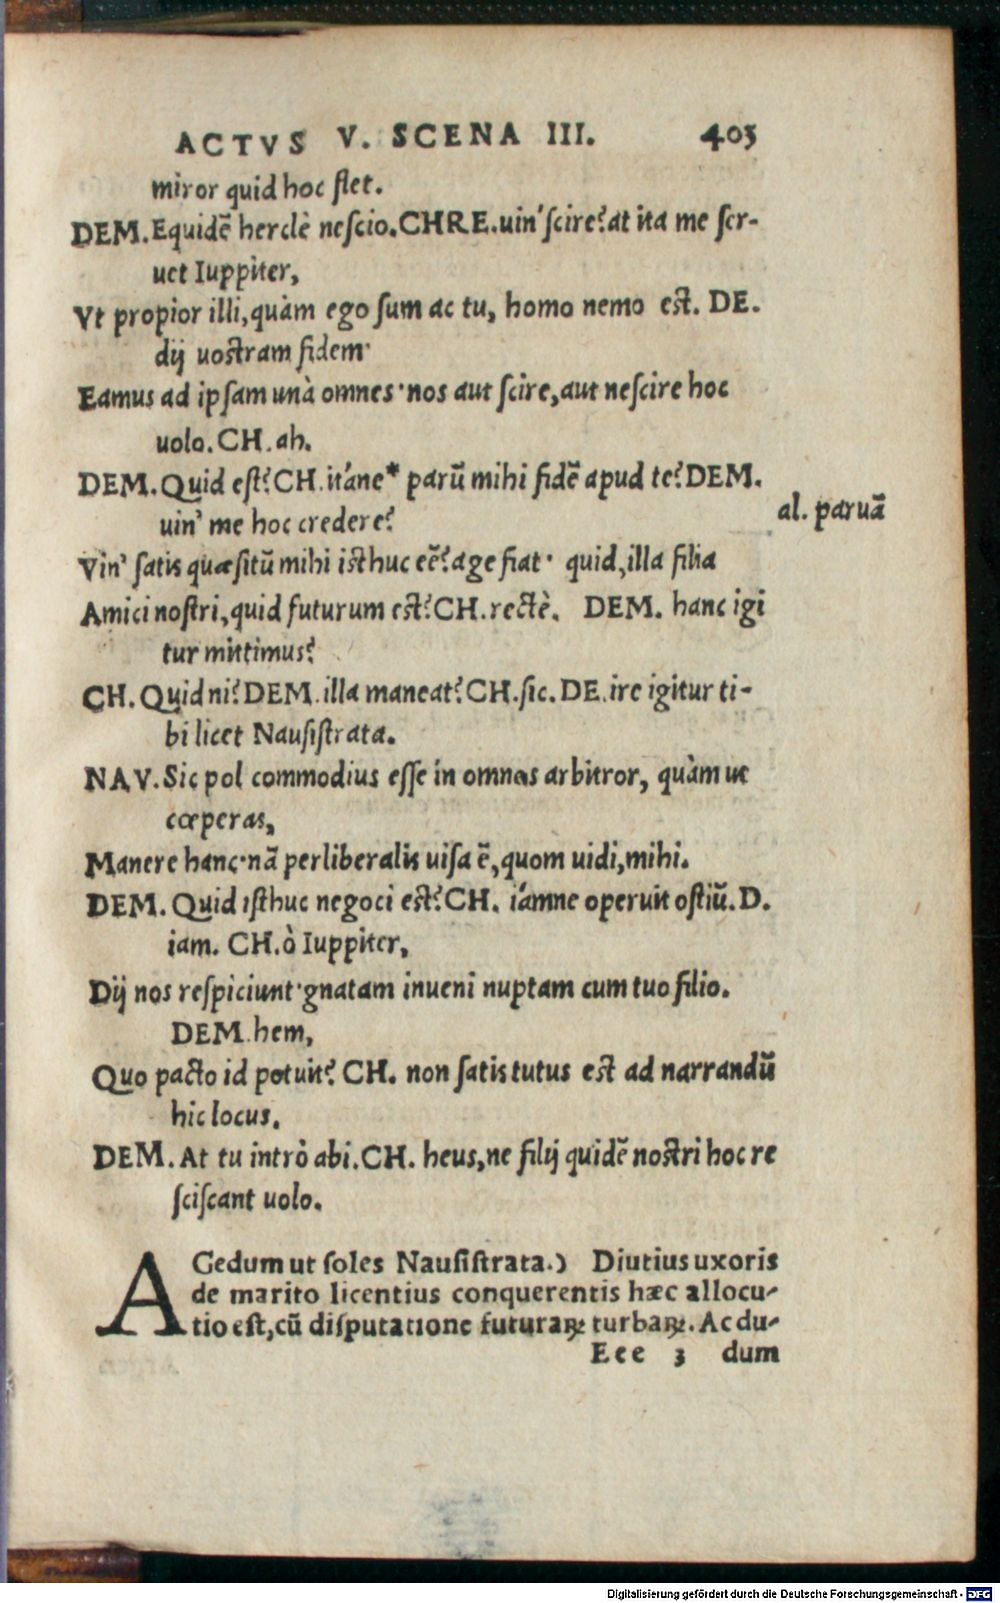 ACTVS V. SCENA III. 405
miror quid hoc siet.
DEM. Equidē herclè nescio. CHRE. uin' scire? at ita me ser-
uet Iuppiter,
Vt propior illi, quàm ego sum ac tu, homo nemo est. DE.
dij uostram fidem·
Eamus ad ipsam unà omnes· nos aut scire, aut nescire hoc
uolo. CH. ah.
DEM. Quid est? CH. itáne* parū mihi fidē apud te? DEM.
al. paruā
uin' me hoc credere?
Vin' satis quæsitū mihi isthuc eē? age fiat· quid, illa filia
Amici nostri, quid futurum est? CH. rectè. DEM. hanc igi
tur mittimus?
CH. Quid ni? DEM. illa maneat? CH. sic. DE. ire igitur ti-
bi licet Nausistrata.
NAV. Sic pol commodius esse in omnes arbitror, quàm ut
cœperas,
Manere hanc· nā perliberalis uisa ē, quom uidi, mihi.
DEM. Quid isthuc negoci est? CH. iámne operuit ostiū. D.
iam. CH. ò Iuppiter,
Dij nos respiciunt· gnatam inueni nuptam cum tuo filio.
DEM. hem,
Quo pacto id potuit? CH. non satis tutus est ad narrandū
hic locus.
DEM. At tu intrò abi. CH. heus, ne filij quidē nostri hoc re
sciscant uolo.
AGedum ut soles Nausistrata.) Diutius uxoris
de marito licentius conquerentis hæc allocu-
tio est, cū disputatione futuraꝝ turbaꝝ. Ac du-
Eee 3 dum
Digitalisierung gefördert durch die Deutsche Forschungsgemeinschaft - DFG